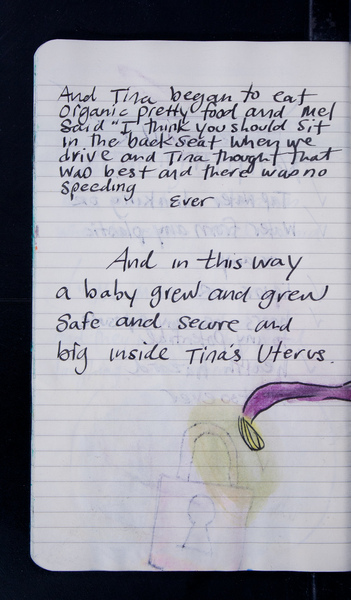 And Tina began to eat
organic pretty food and Mel
Said "I think you should sit
in the back seat when we
drive and Tina thought that
was best and there was no
speeding
Ever
And in this way
a baby grew and grew
Safe and secure and
big inside Tina's Uterus.